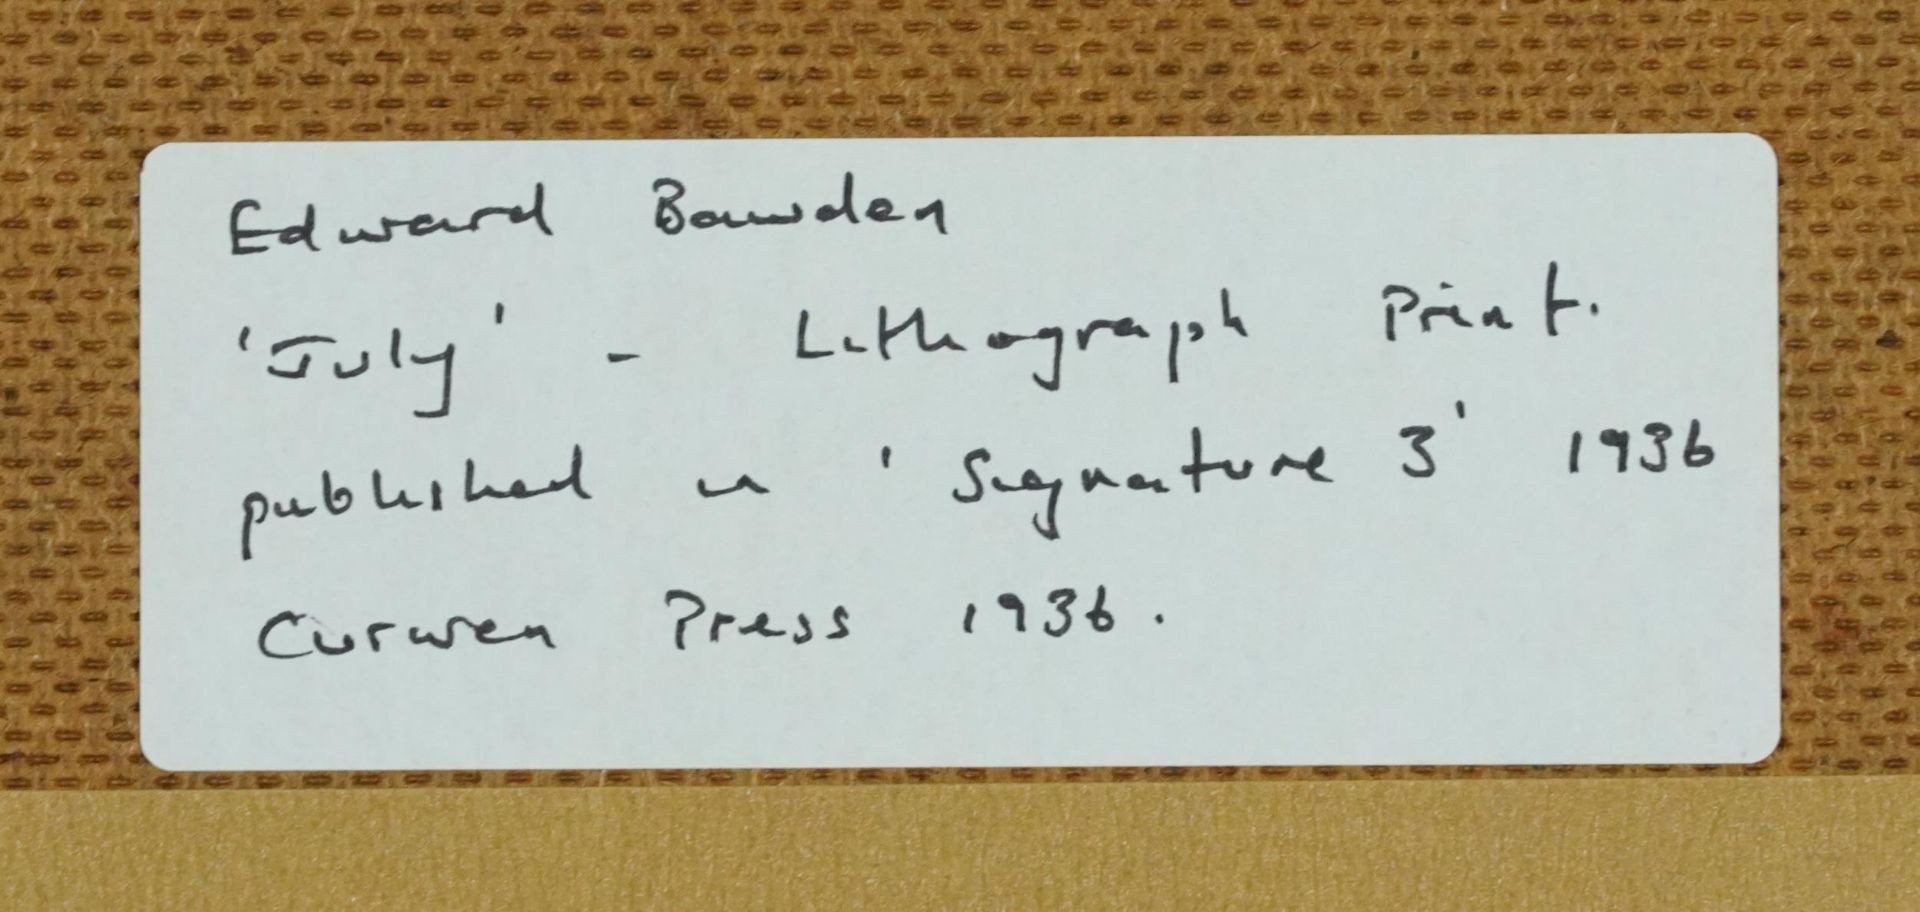 Edward Bawden
'July' - Lithograph Print.
published in 'Signature 3' 1936
Curwen Press 1936.